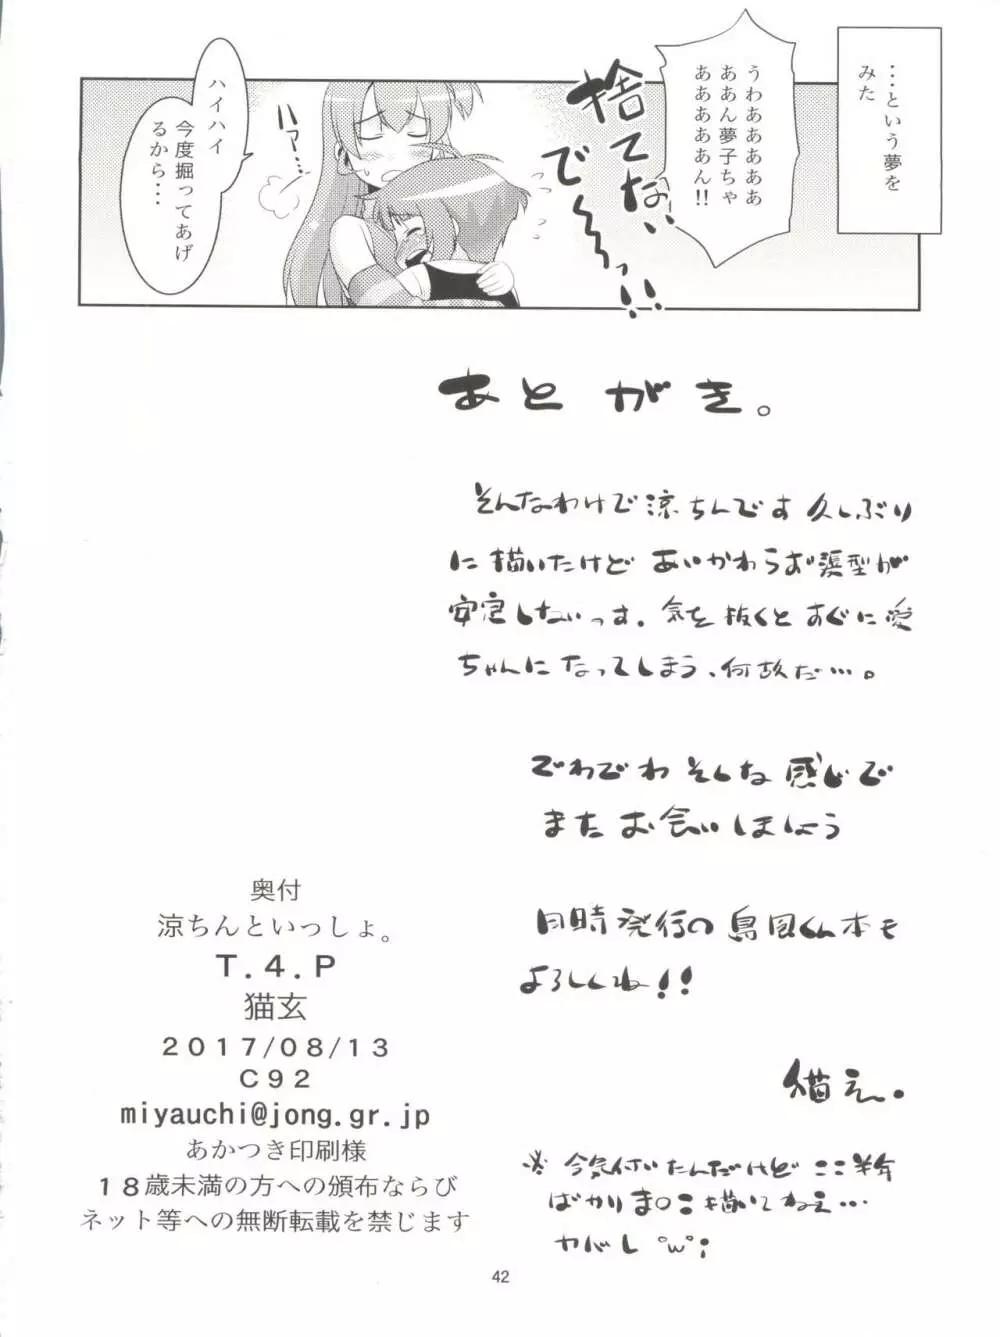 ・・・という夢を
みた
うわああああああ
ああん夢子ちゃ
あああああん!!
捨てないで〜〜っ!!
ハァ…
ハイハイ
今度掘ってあげ
るから・・・
あとがき。
そんなわけで涼ちんです久しぶり
に描いたけどあいかわらず髪型が
安定しないっす。気を抜くとすぐに愛
ちゃんになってしまう、何故だ…。
でわでわそんな感じで
またお会いしましょう
同時発行の島風くん本も
よろしくね!!
猫玄。
※今気付いたんだけどここ半年
ばかりま○こ描いてねえ…
ヤバし °w°;
奥付
涼ちんといっしょ。
T.4.P
猫玄
2017/08/13
C92
miyauchi@jong.gr.jp
あかつき印刷様
18歳未満の方への頒布ならび
ネット等への無断転載を禁じます
42